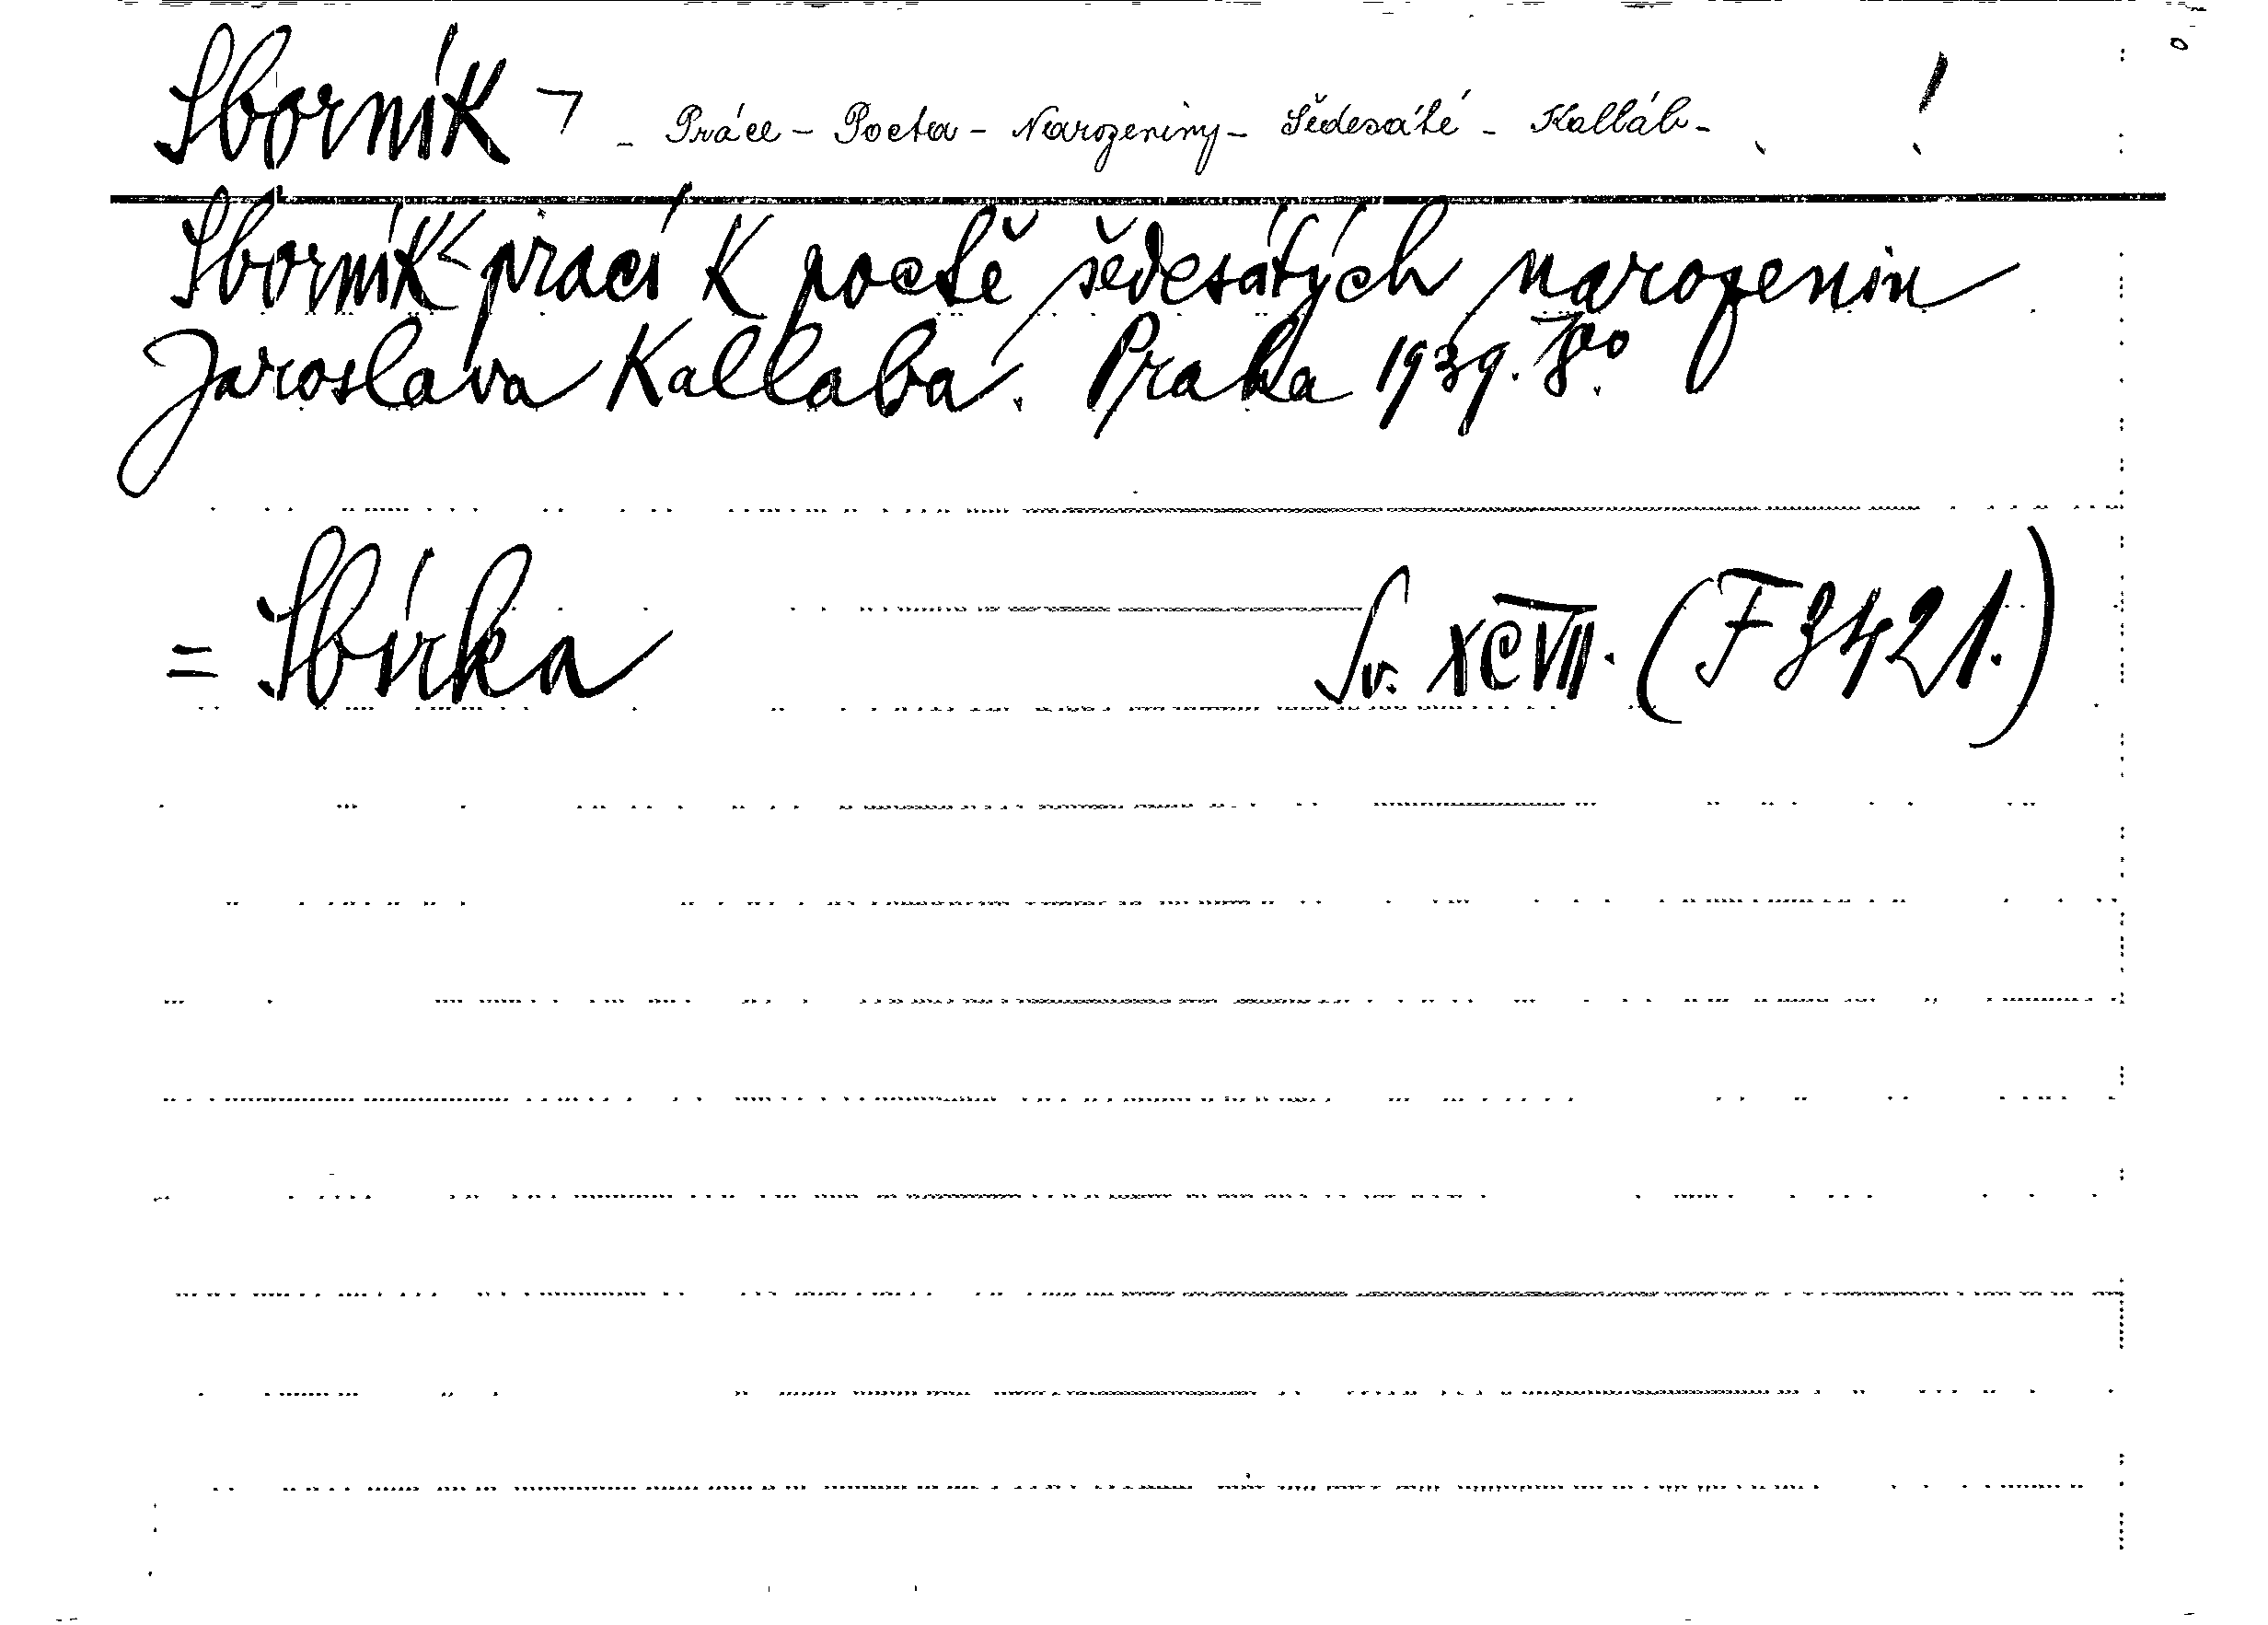 Sborník - Práce - Pocta - Narozeniny - Šedesáté - Kalláb - !
Sborník prací k poctě šedesátých narozenin
Jaroslava Kallaba. Praha 1939. 8o.
= Sbírka Sv. XCVII. (F 3421.)